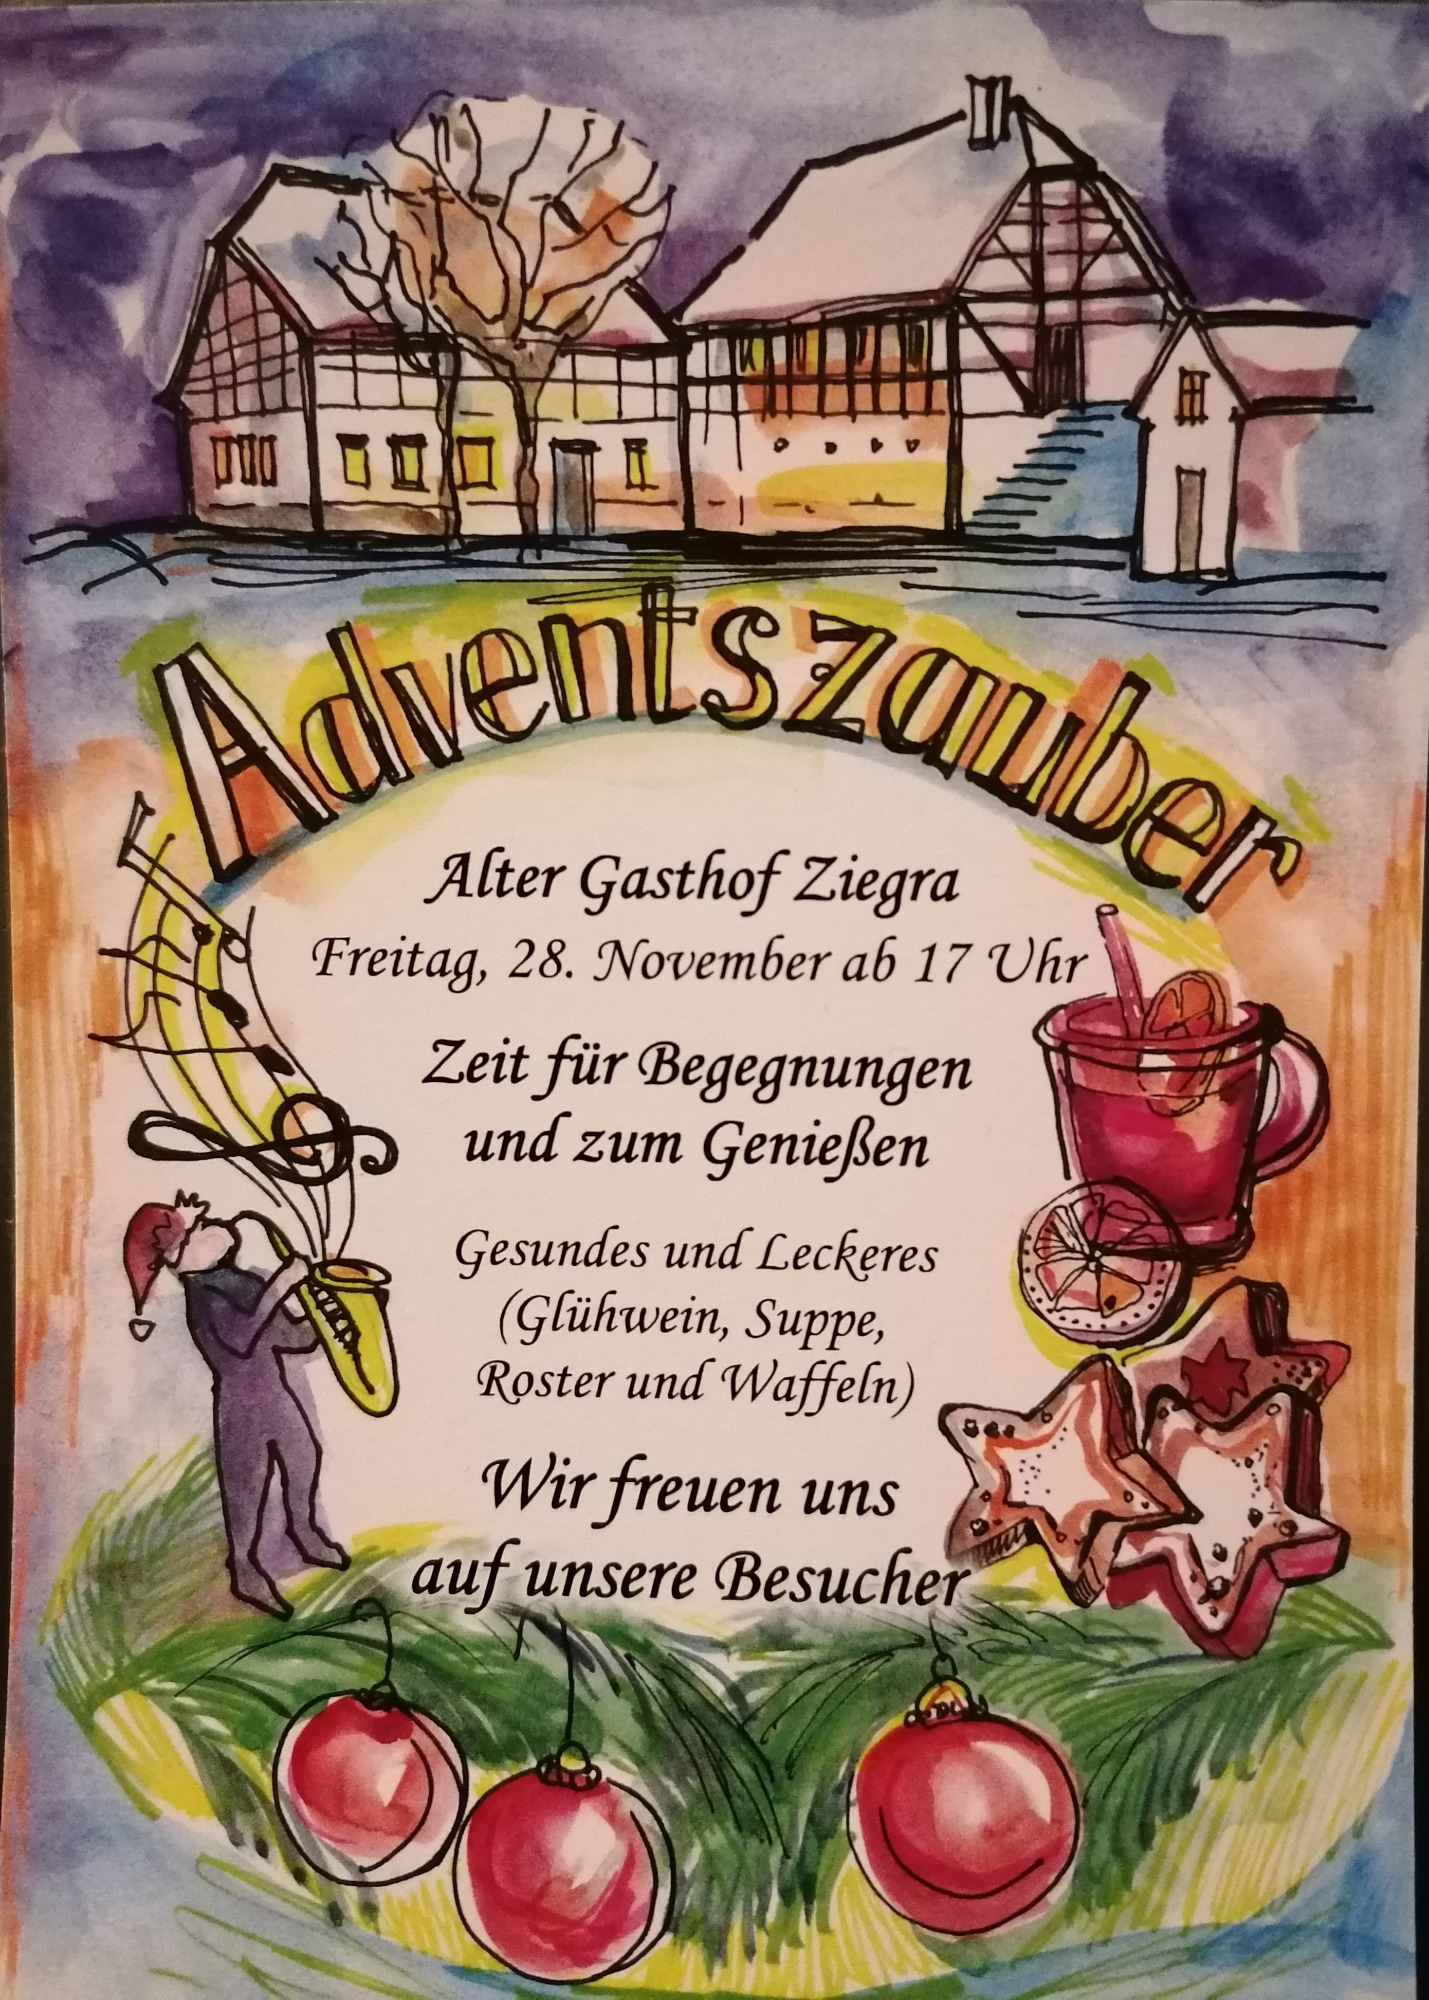 Adventszauber
Alter Gasthof Ziegra
Freitag, 28. November ab 17 Uhr
Zeit für Begegnungen
und zum Genießen
Gesundes und Leckeres
(Glühwein, Suppe,
Roster und Waffeln)
Wir freuen uns
auf unsere Besucher